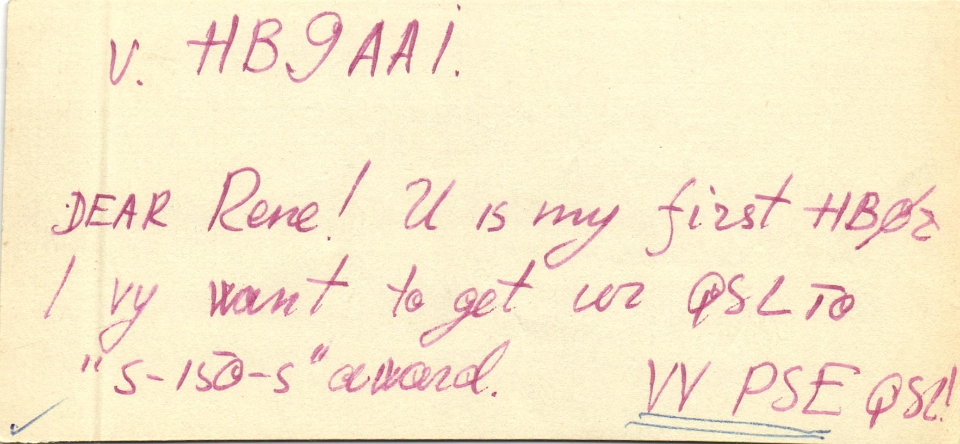 V. HB9AAI.
DEAR Rene! U is my first HBØ
I vy want to get ur QSL to
"S-150-S" award. VY PSE QSL!